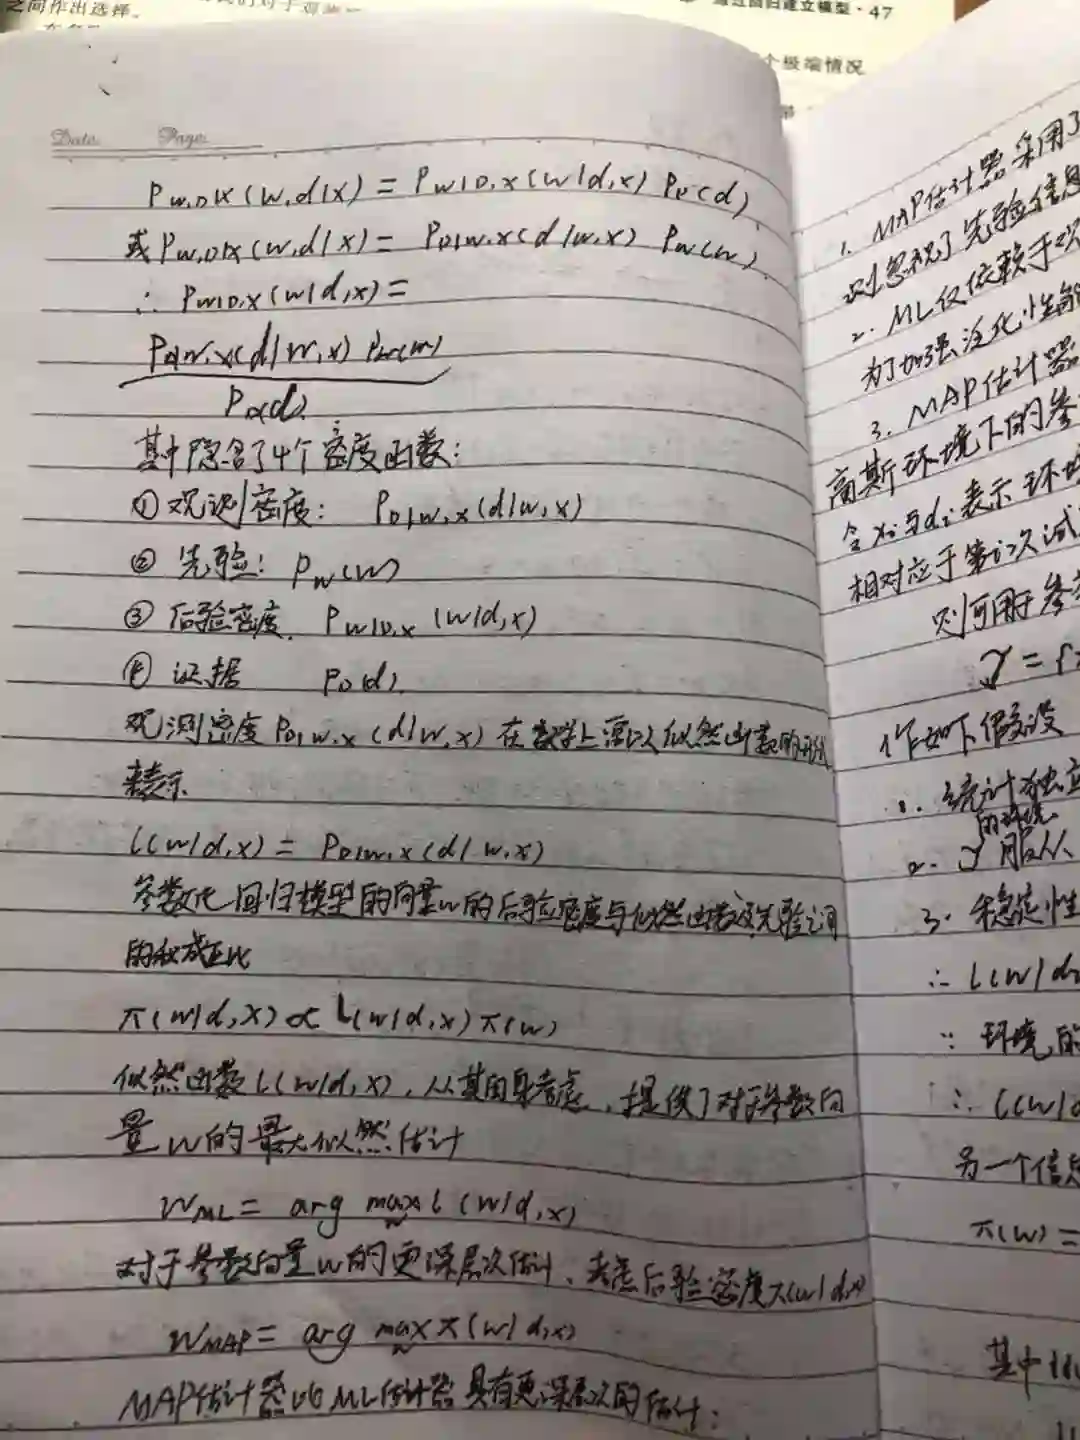 之间作出选择。
通过回归建立模型·47
个极端情况
Date: Page:
P_{W,D|X}(w,d|x) = P_{W|D,X}(w|d,x) P_D(d)
或 P_{W,D|X}(w,d|x) = P_{D|W,X}(d|w,x) P_W(w)
∴ P_{W|D,X}(w|d,x) =
P_{D|W,X}(d|w,x) P_W(w)
P_D(d)
其中隐含了4个密度函数:
① 观测密度: P_{D|W,X}(d|w,x)
② 先验: P_W(w)
③ 后验密度. P_{W|D,X}(w|d,x)
④ 证据 P_D(d).
观测密度 P_{D|W,X}(d|w,x) 在数学上常以似然函数的形式
来表示
l(w|d,x) = P_{D|W,X}(d|w,x)
参数化回归模型的向量w的后验密度与似然函数及先验之间
的积成正比
π(w|d,x) ∝ L(w|d,x) π(w)
似然函数 l(w|d,x), 从其自身考虑, 提供了对于参数向
量w的最大似然估计
W_{ML} = arg max_w l(w|d,x)
对于参数向量w的更深层次估计、考虑后验密度π(w|d,x)
W_{MAP} = arg max_w π(w|d,x)
MAP估计器比ML估计器具有更深层次的估计:
1. MAP估计器采用了
则忽视了先验信息
2. ML仅依赖于观
为了加强泛化性能
3. MAP估计器
高斯环境下的参
令xᵢ与dᵢ表示环境
相对应于第i次试
则可用于参
y = f
作如下假设
1. 统计独立
的环境
2. y 服从
3. 稳定性
∴ l(w|d
∵ 环境的
∴ l(w|d
另一个信息
π(w) =
其中